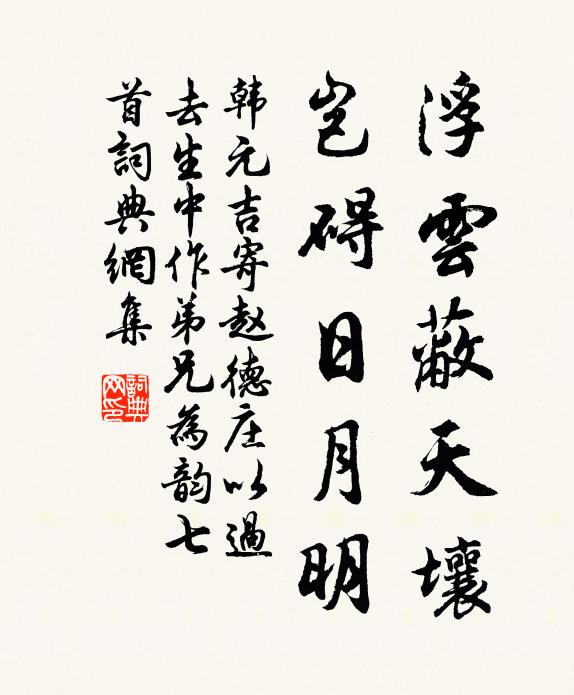 浮雲蔽天壤
豈碍日月明
韩元吉寄赵德庄以過
去生中作弟兄為韵七
首詞典網集
詞典
网印